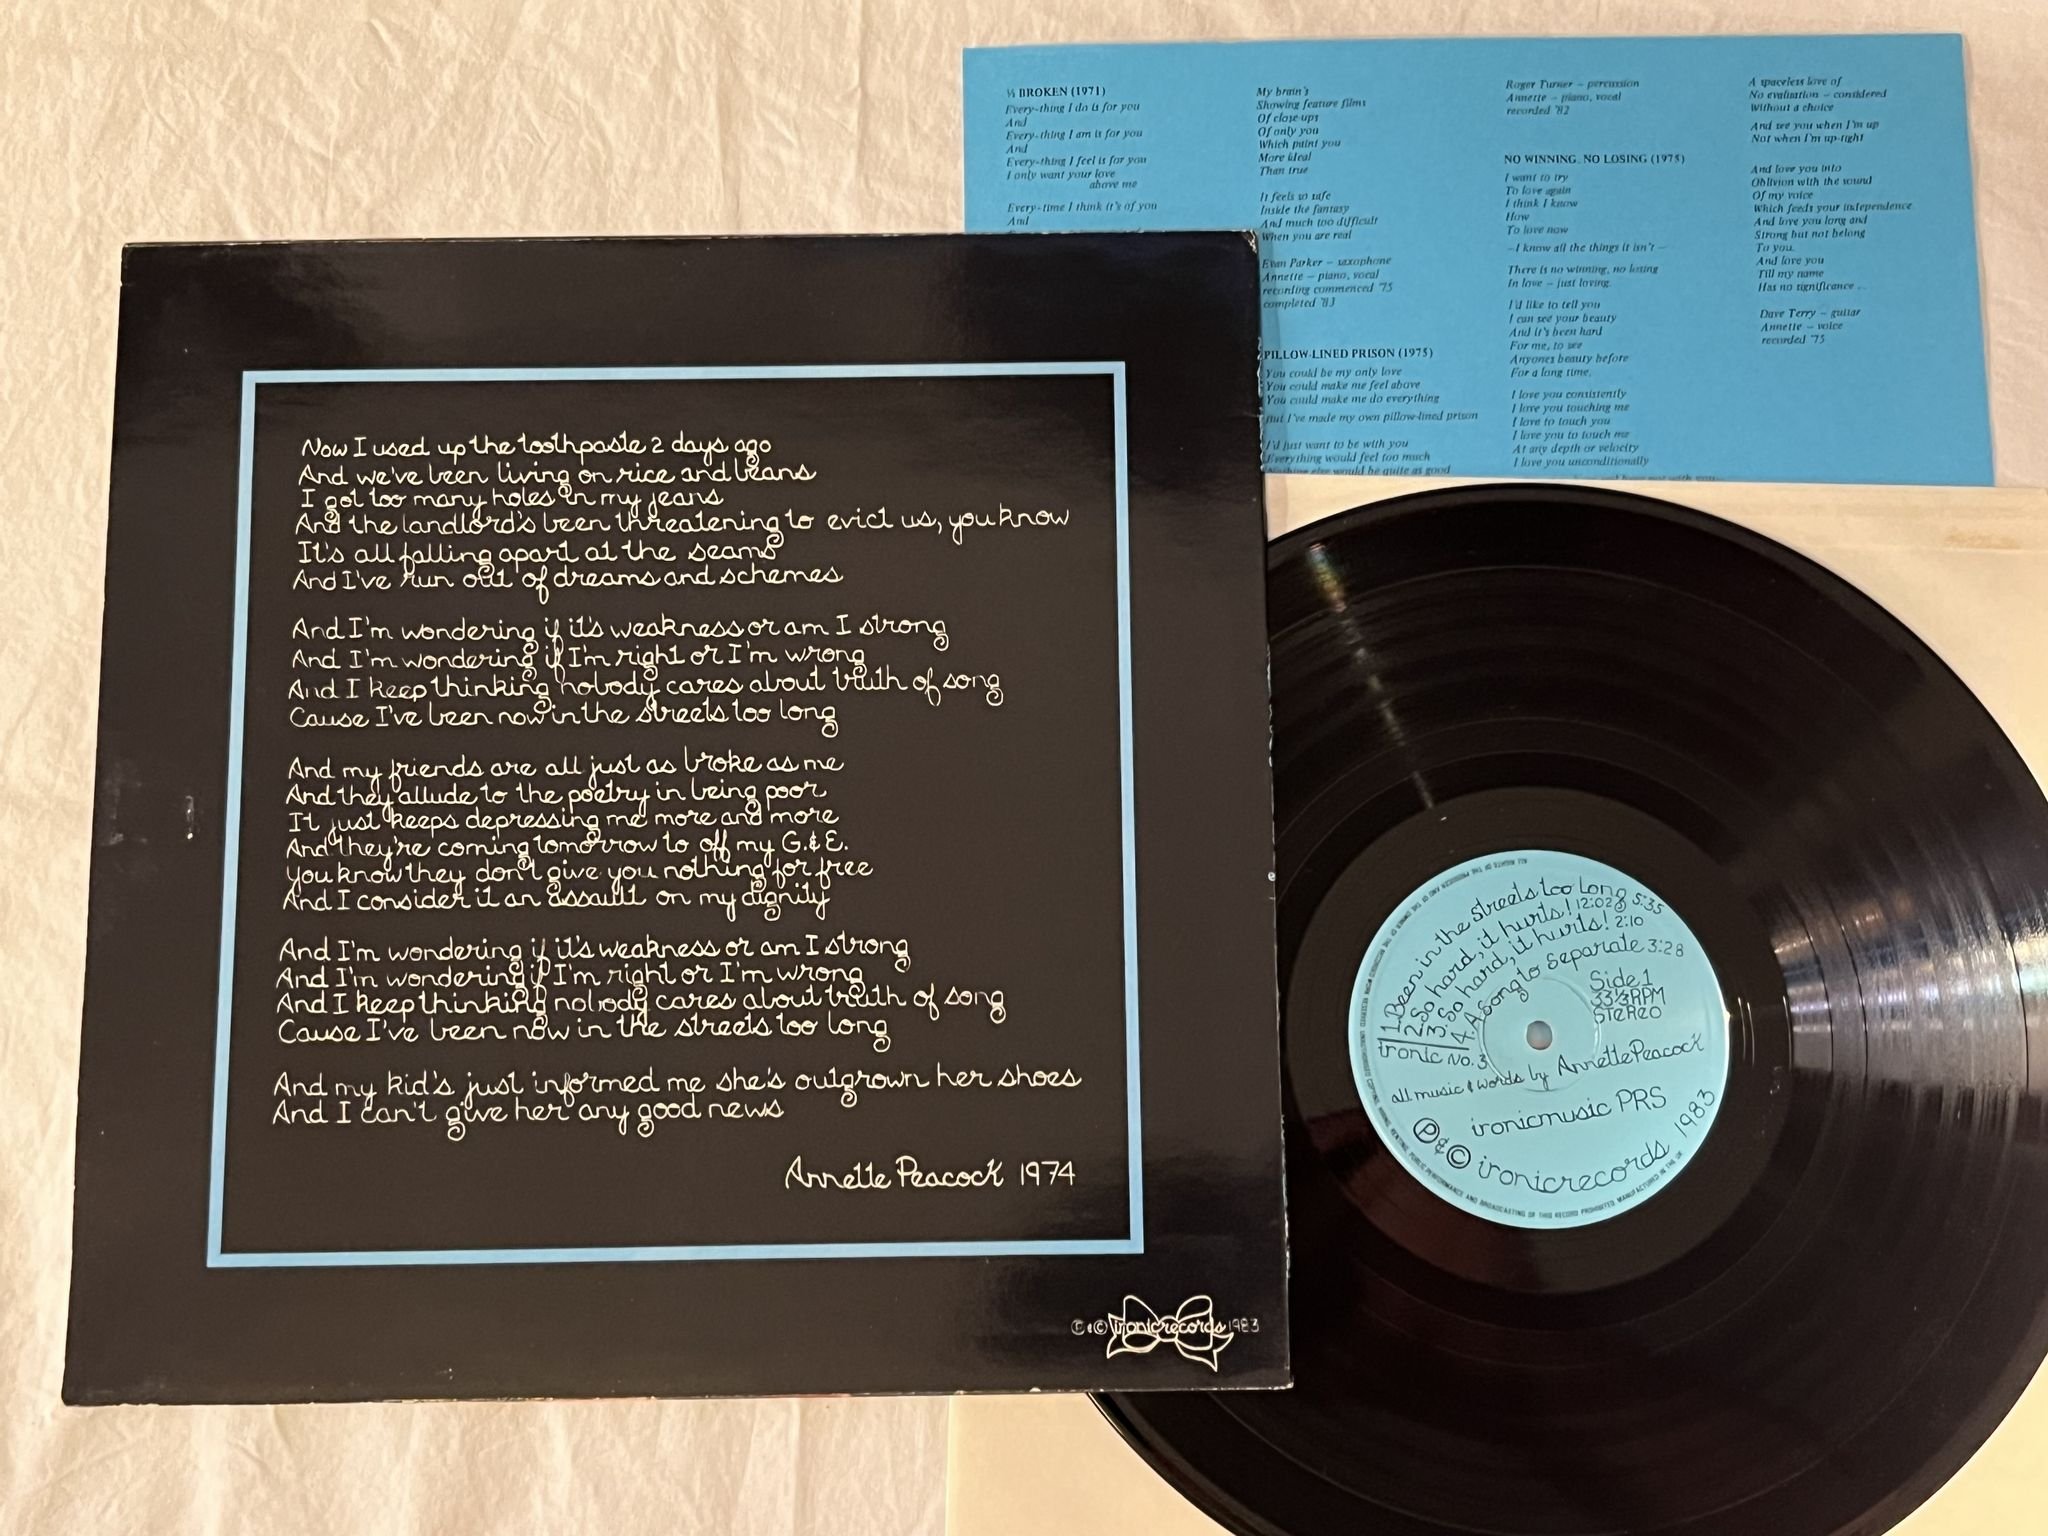 Now I used up the toothpaste 2 days ago
And we've been living on rice and beans
I got too many holes in my jeans
And the landlord's been threatening to evict us, you know
It's all falling apart at the seams
And I've run out of dreams and schemes
And I'm wondering if it's weakness or am I strong
And I'm wondering if I'm right or I'm wrong
And I keep thinking nobody cares about truth of song
Cause I've been now in the streets too long
And my friends are all just as broke as me
And they allude to the poetry in being poor
It just keeps depressing me more and more
And they're coming tomorrow to off my G.& E.
You know they don't give you nothing for free
And I consider it an assault on my dignity
And I'm wondering if it's weakness or am I strong
And I'm wondering if I'm right or I'm wrong
And I keep thinking nobody cares about truth of song
Cause I've been now in the streets too long
And my kid's just informed me she's outgrown her shoes
And I can't give her any good news
Annette Peacock 1974
Ⓟ&© ironicrecords 1983
½ BROKEN (1971)
Every-thing I do is for you
And
Every-thing I am is for you
And
Every-thing I feel is for you
I only want your love
above me
Every-time I think it's of you
And
My brain's
Showing feature films
Of close-ups
Of only you
Which paint you
More ideal
Than true
It feels so safe
Inside the fantasy
And much too difficult
When you are real
Evan Parker – saxophone
Annette – piano, vocal
recording commenced '75
completed '83
PILLOW-LINED PRISON (1975)
You could be my only love
You could make me feel above
You could make me do everything
But I've made my own pillow-lined prison
I'd just want to be with you
Everything would feel too much
Nothing else would be quite as good
Roger Turner – percussion
Annette – piano, vocal
recorded '82
NO WINNING, NO LOSING (1975)
I want to try
To love again
I think I know
How
To love now
–I know all the things it isn't –
There is no winning, no losing
In love – just loving.
I'd like to tell you
I can see your beauty
And it's been hard
For me, to see
Anyones beauty before
For a long time.
I love you consistently
I love you touching me
I love to touch you
I love you to touch me
At any depth or velocity
I love you unconditionally
A spaceless love of
No evaluation – considered
Without a choice
And see you when I'm up
Not when I'm up-tight
And love you into
Oblivion with the sound
Of my voice
Which feeds your independence
And love you long and
Strong but not belong
To you.
And love you
Till my name
Has no significance ...
Dave Terry – guitar
Annette – voice
recorded '75
1. Been in the streets too long 5:35
2. So hard, it hurts! 12:02
3. So hard, it hurts! 2:10
4. A Song to Separate 3:28
ironic no. 3
Side 1
33⅓ RPM
Stereo
all music & words by Annette Peacock
ironicmusic PRS
Ⓟ&© ironicrecords 1983
PUBLIC PERFORMANCE AND BROADCASTING OF THIS RECORD PROHIBITED MANUFACTURED IN THE UK